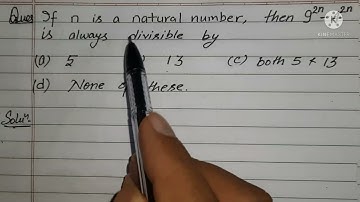 Ques: If n is a natural number, then 9²ⁿ - ²ⁿ
is always divisible by
(a) 5 13 (c) both 5 & 13
(d) None these.
Solu":
KINEMASTER